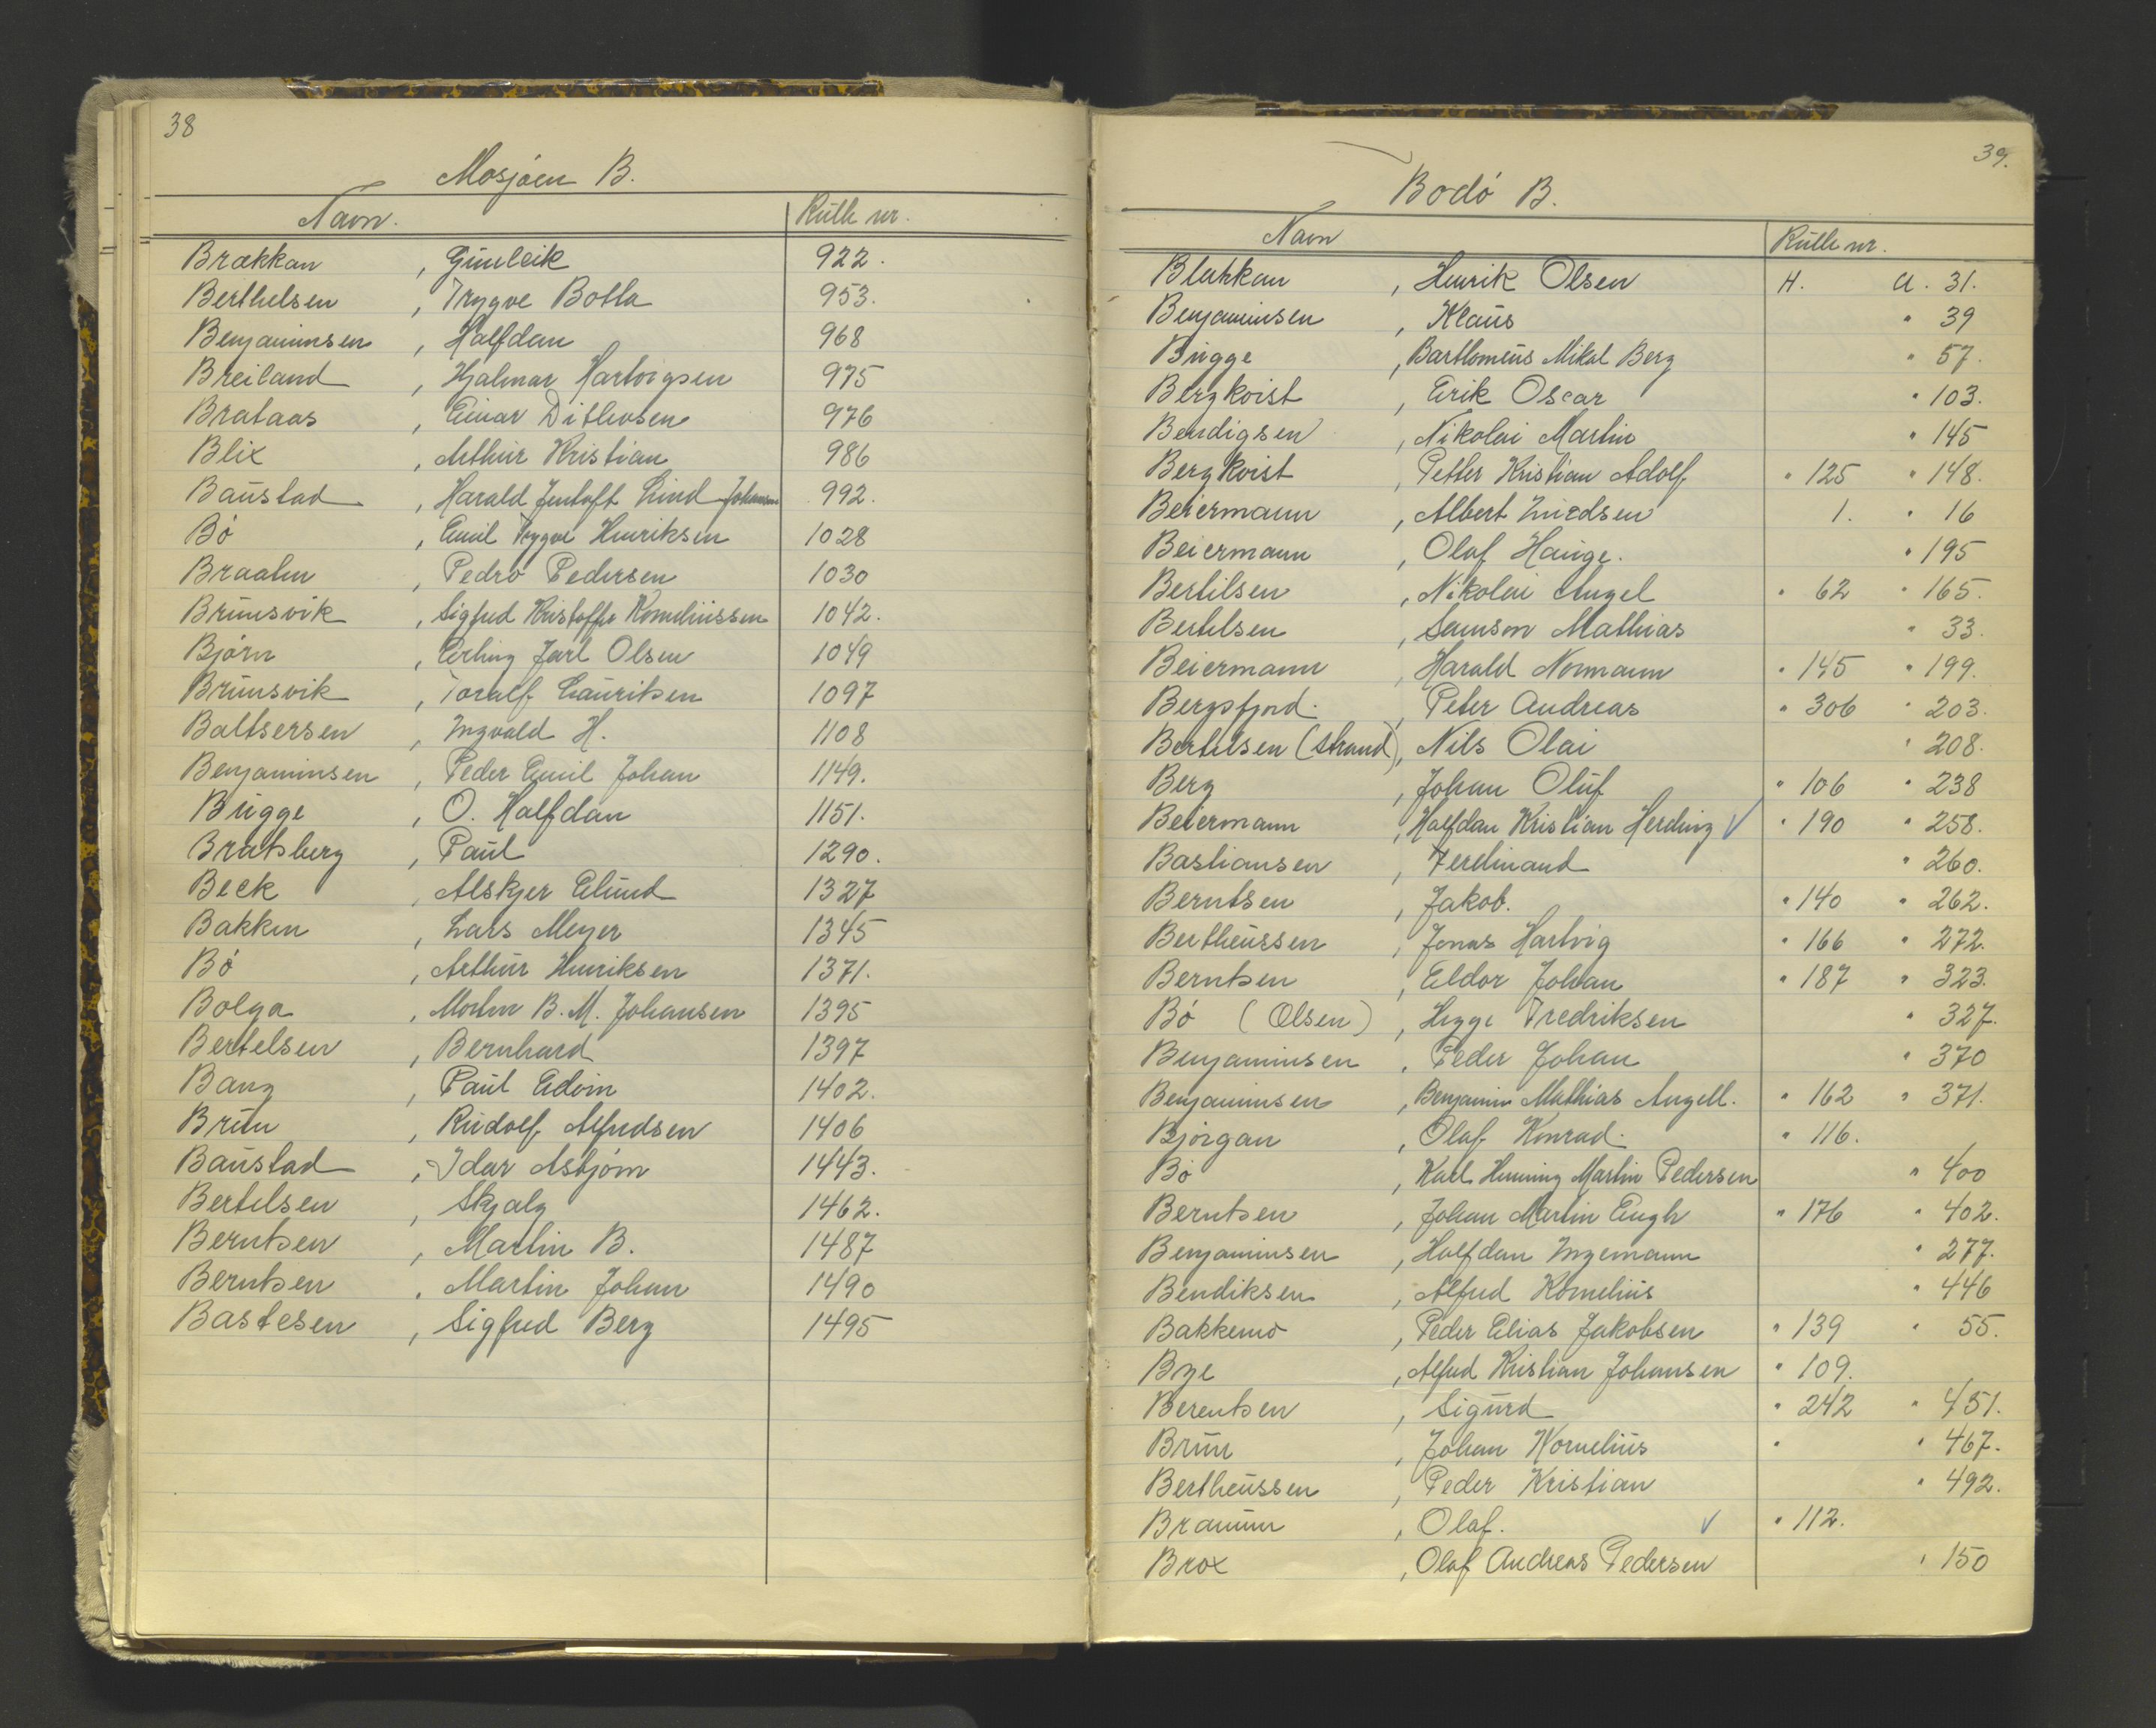 38
Mosjøen B.
Navn. Rulle nr.
Brækkan, Gunleik 922.
Berthelsen, Trygve Botla 953.
Benjaminsen, Halfdan 968
Breiland, Hjalmar Hartvigsen 975
Brataas, Einar Ditlevsen 976
Blix, Arthur Kristian 986
Baustad, Harald Jentoft Lind Johansen 992.
Bø, Emil Trygve Henriksen 1028
Braaten, Pedro Pedersen 1030
Brunsvik, Sigfred Kristoffer Korneliussen 1042.
Bjørn, Erling Jarl Olsen 1049
Brunsvik, Toralf Lauritsen 1097
Baltsersen, Ingvald H. 1108
Benjaminsen, Peder Emil Johan 1149.
Bugge, O. Halfdan 1151.
Bratsberg, Paul 1290.
Beck, Alskjer Elund 1327
Bakken, Lars Meyer 1345
Bø, Arthur Henriksen 1371.
Bolga, Morten B. M. Johansen 1395
Bertelsen, Bernhard 1397
Bang, Paul Edvin 1402.
Brun, Rudolf Alfredsen 1406
Baustad, Idar Asbjørn 1443.
Bertelsen, Skjalg 1462.
Berntsen, Martin B. 1487
Berntsen, Martin Johan 1490
Bastesen, Sigfred Berg 1495
39.
Bodø B.
Navn Rulle nr.
Blakkan, Henrik Olsen H. A. 31.
Benjaminsen, Klaus " 39
Bugge, Bartlomeus Mikal Berg " 57.
Bergkvist, Erik Oscar " 103.
Bendigsen, Nikolai Martin " 145
Bergkvist, Petter Kristian Adolf " 125 " 148.
Beiermann, Albert 1. " 16
Beiermann, Olaf Hauge. " 195
Bertilsen, Nikolai Angel " 62 " 165.
Bertelsen, Samson Mathias " 33.
Beiermann, Harald Normann " 145 " 199.
Bergsfjord, Peter Andreas " 306 " 203.
Bertelsen (Strand), Nils Olai " 208.
Berg, Johan Oluf " 106 " 238
Beiermann, Halfdan Kristian Herding ✓ " 190 " 258.
Bastiansen, Ferdinand " 260.
Berntsen, Jakob. " 140 " 262.
Bertheussen, Jonas Hartvig " 166 " 272.
Berntsen, Eldor Johan " 187 " 323.
Bø (Olsen), Hegge Fredriksen " 327.
Benjaminsen, Peder Johan " 370
Benjaminsen, Benjamin Mathias Angell. " 162 " 371.
Bjørgan, Olaf Konrad. " 116.
Bø, Karl Henning Martin Pedersen " 400
Berntsen, Johan Martin Engh " 176 " 402.
Benjaminsen, Halfdan Ingemann " 277.
Bendiksen, Alfred Kornelius " 446
Bakkemo, Peder Elias Jakobsen " 139 " 55.
Bye, Alfred Kristian Johansen " 109.
Berentsen, Sigurd " 242 " 451.
Brun, Johan Kornelius " " 467.
Bertheussen, Peder Kristian " 492.
Olaf. ✓ " 112.
Brox, Olaf Andreas Pedersen " 150